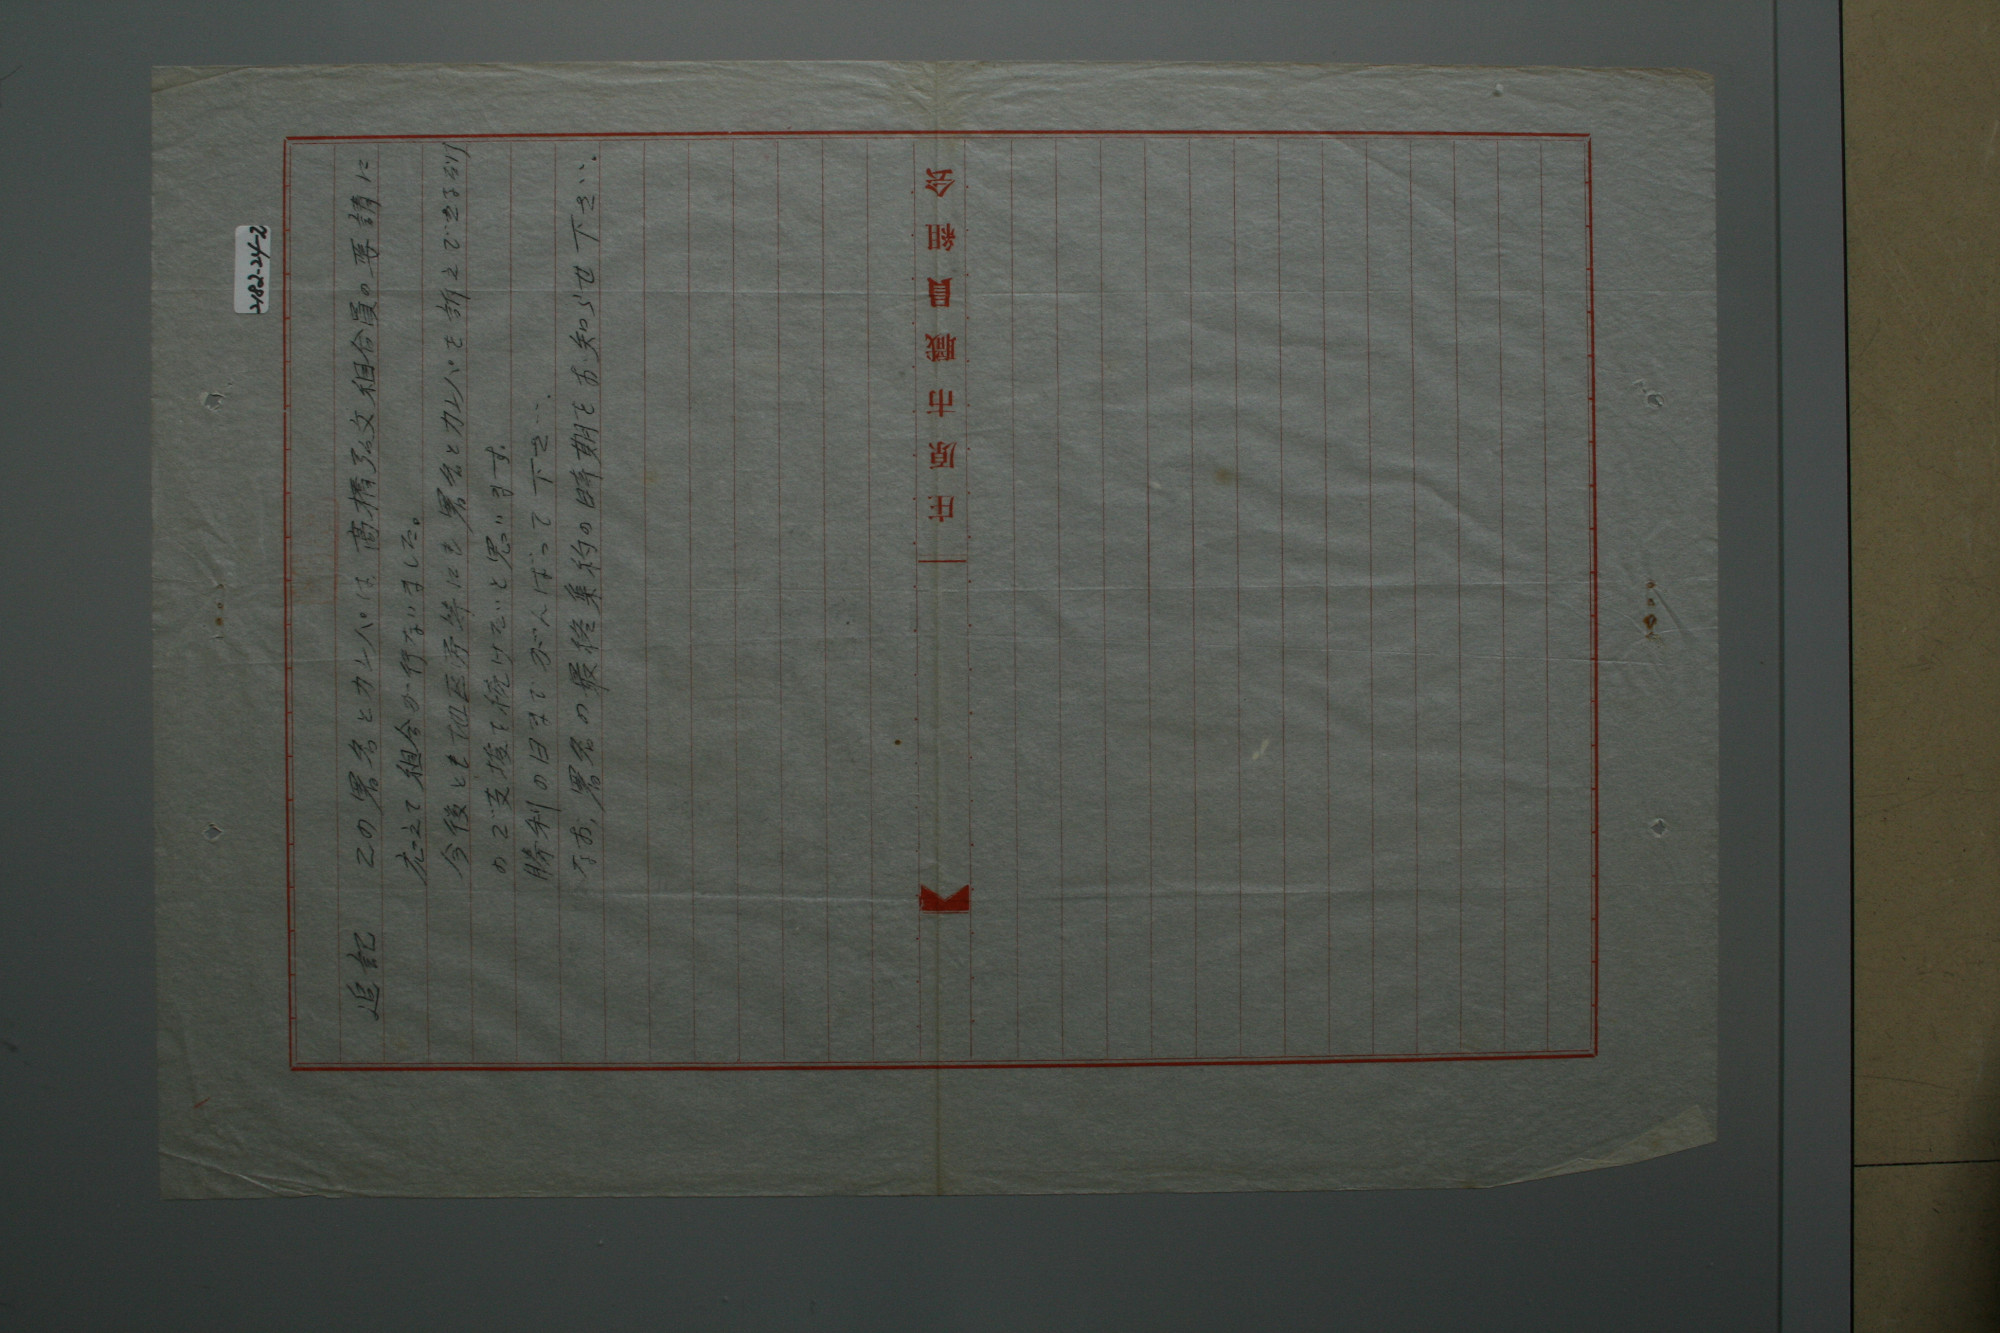 追記 この署名とカンパは、高橋弘文組合員の要請に
応えて組合が行ないました。
今後とも地区労等にも署名とカンパを訴えてまいります
ので支援を続けたいと思います。
勝利の日までがんばって下さい。
なお、署名の最終集約の時期をお知らせ下さい。
庄原市職員組合
2182-24-2